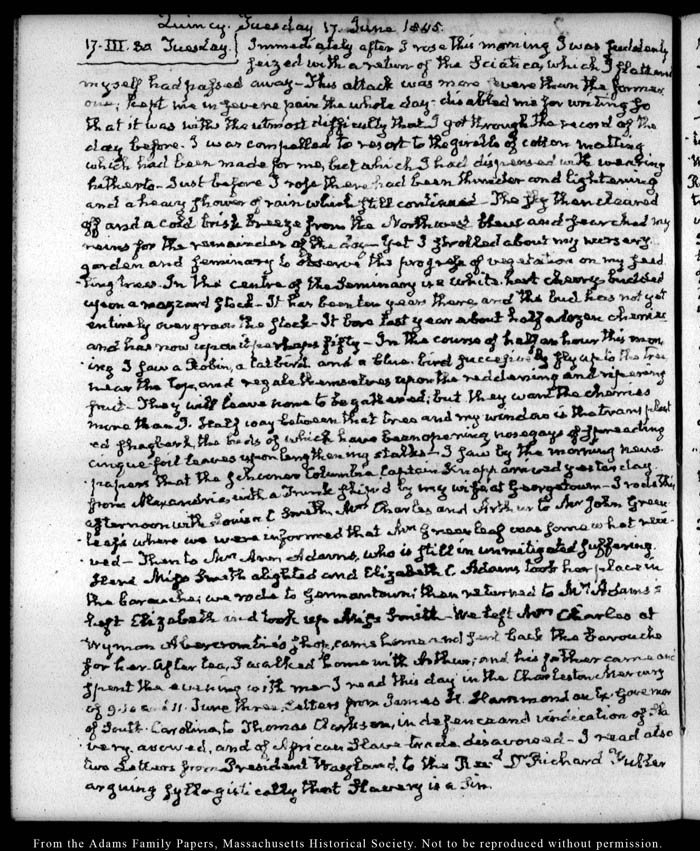 Quincy. Tuesday 17. June 1845.
17. III. 30 Tuesday. Immediately after I rose this morning I was suddenly
seized with a return of the Sciatica, which I flattered
myself had passed away. This attack was more severe than the former
one; kept me in severe pain the whole day; disabled me for writing so
that it was with the utmost difficulty that I got through the record of the
day before. I was compelled to resort to the girdle of cotton matting
which had been made for me, but which I had dispensed with wearing
hitherto. Just before I rose there had been thunder and lightening
and a heavy shower of rain which still continued. The sky then cleared
off and a cold brisk breeze from the Northwest blew and searched my
reins for the remainder of the day. Yet I strolled about my nursery
garden and seminary to observe the progress of vegetation on my seed
ling trees. In the centre of the Seminary is a white heart cherry budded
upon a mazzard stock. It has been ten years there, and the bud has not yet
entirely overgrown the stock. It bore last year about half a dozen cherries
and has now upon it perhaps fifty. In the course of half an hour this morn
ing I saw a Robin, a cat bird and a blue bird successively fly up to the tree
near the top, and regale themselves upon the reddening and ripening
fruit. They will leave none to be gathered; but they want the cherries
more than I. Half way between that tree and my window is the transplant
ed shagbark the buds of which have been opening nosegays of spreading
cinque-foil leaves upon lengthening stalks. I saw by the morning news
papers that the Schooner Columbia Captain Knapp arrived yesterday
from Alexandria, with a Trunk ship'd by my wife at Georgetown. I rode this
afternoon with Louisa C Smith, Mrs Charles and Arthur to Mr John Green
leaf's where we were informed that Mrs Greenleaf was somewhat reli
ved. Then to Mrs Ann Adams, who is still in unmitigated suffering.
Here Miss Smith alighted and Elizabeth C. Adams took her place in
the barouche; we rode to Germantown; then returned to Mrs Adams's
left Elizabeth and took up Miss Smith. We left Mrs Charles at
Wyman Abercrombie's shop, came home and sent back the Barouche
for her. After tea, I walked home with Arthur; and his father came and
spent the evening with me. I read this day in the Charleston Mercury
of 9. 10 and 11. June three Letters from James H. Hammond an Ex-Governor
of South Carolina, to Thomas Clarkson, in defence and vindication of Sla
very avowed, and of African Slave trade disavowed. I read also
two Letters from President Wayland, to the Revd Dr Richard Fuller
arguing syllogistically that Slavery is a Sin.
From the Adams Family Papers, Massachusetts Historical Society. Not to be reproduced without permission.